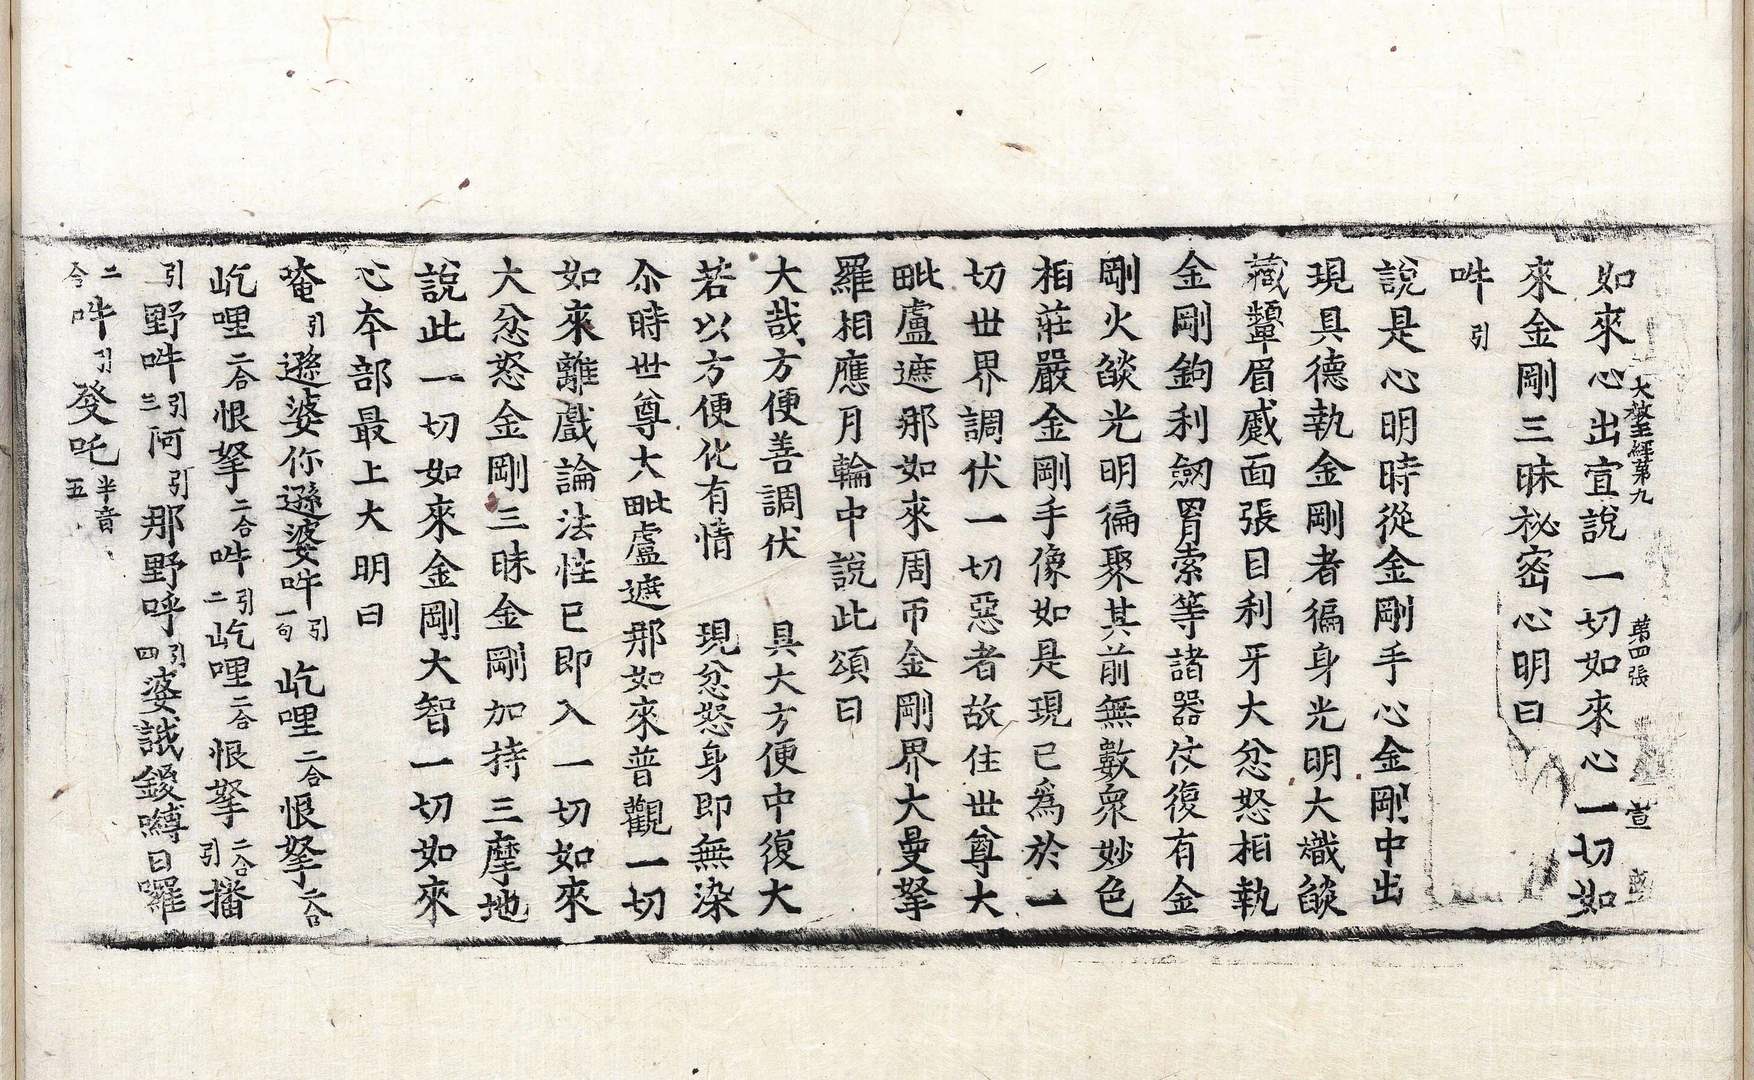 如來心出宣說一切如來心一切如
大教王經第九 第四張 宣
來金剛三昧祕密心明曰
吽引
說是心明時從金剛手心金剛中出
現具德執金剛者徧身光明大熾燄
藏顰眉戚面張目利牙大忿怒相執
金剛鉤利劒罥索等諸器仗復有金
剛火燄光明徧聚其前無數衆妙色
相莊嚴金剛手像如是現已爲於一
切世界調伏一切惡者故住世尊大
毗盧遮那如來周帀金剛界大曼拏
羅相應月輪中說此頌曰
大哉方便善調伏 具大方便中復大
若以方便化有情 現忿怒身即無染
尒時世尊大毗盧遮那如來普觀一切
如來離戲論法性已即入一切如來
大忿怒金剛三昧金剛加持三摩地
說此一切如來金剛大智一切如來
心本部最上大明曰
唵引遜婆你遜婆吽引一句屹哩二合恨拏二合
屹哩二合恨拏二合吽引二屹哩二合恨拏二合引播
引野吽引三阿引那野呼引四婆誐鑁嚩日囉
二合吽引發吒半音五